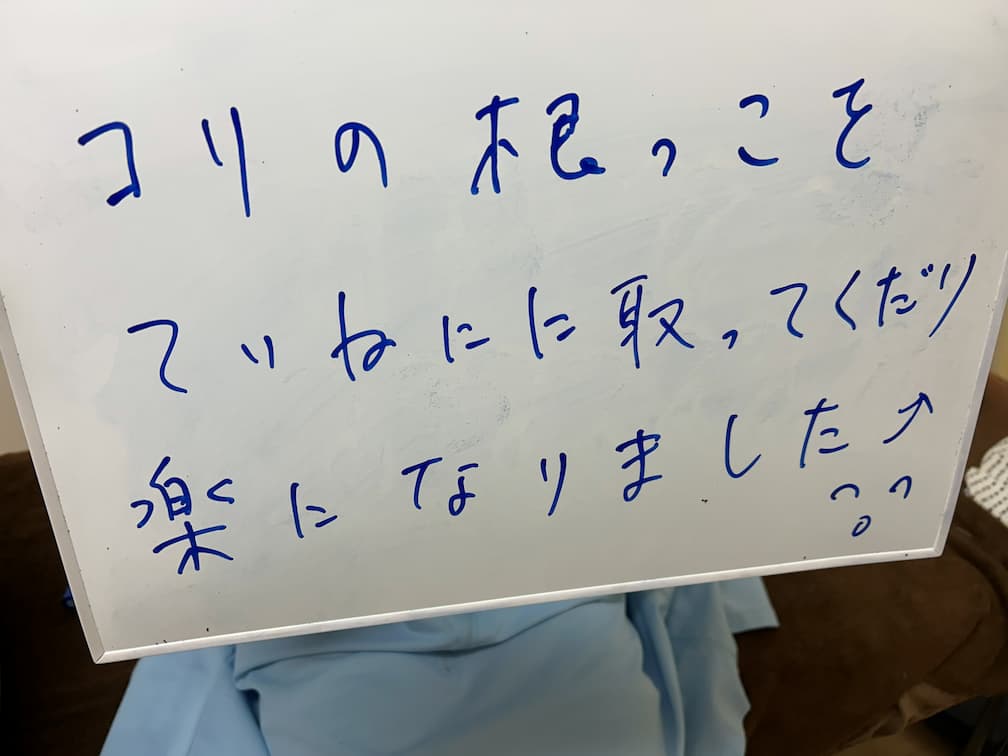 コリの根っこそ
ていねにに取ってくだり
楽になりました↗